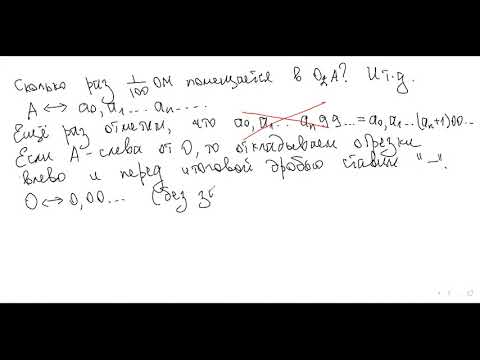 Сколько раз 1/100 ОМ помещается в O₂A? И т.д.
A ↔ a₀,a₁...aₙ....
Ещё раз отметим, что a₀,a₁... aₙ99... = a₀,a₁...(aₙ+1)00...
Если A - слева от O, то откладываем отрезки
влево и перед итоговой дробью ставим "—".
O ↔ 0,00... (без зн